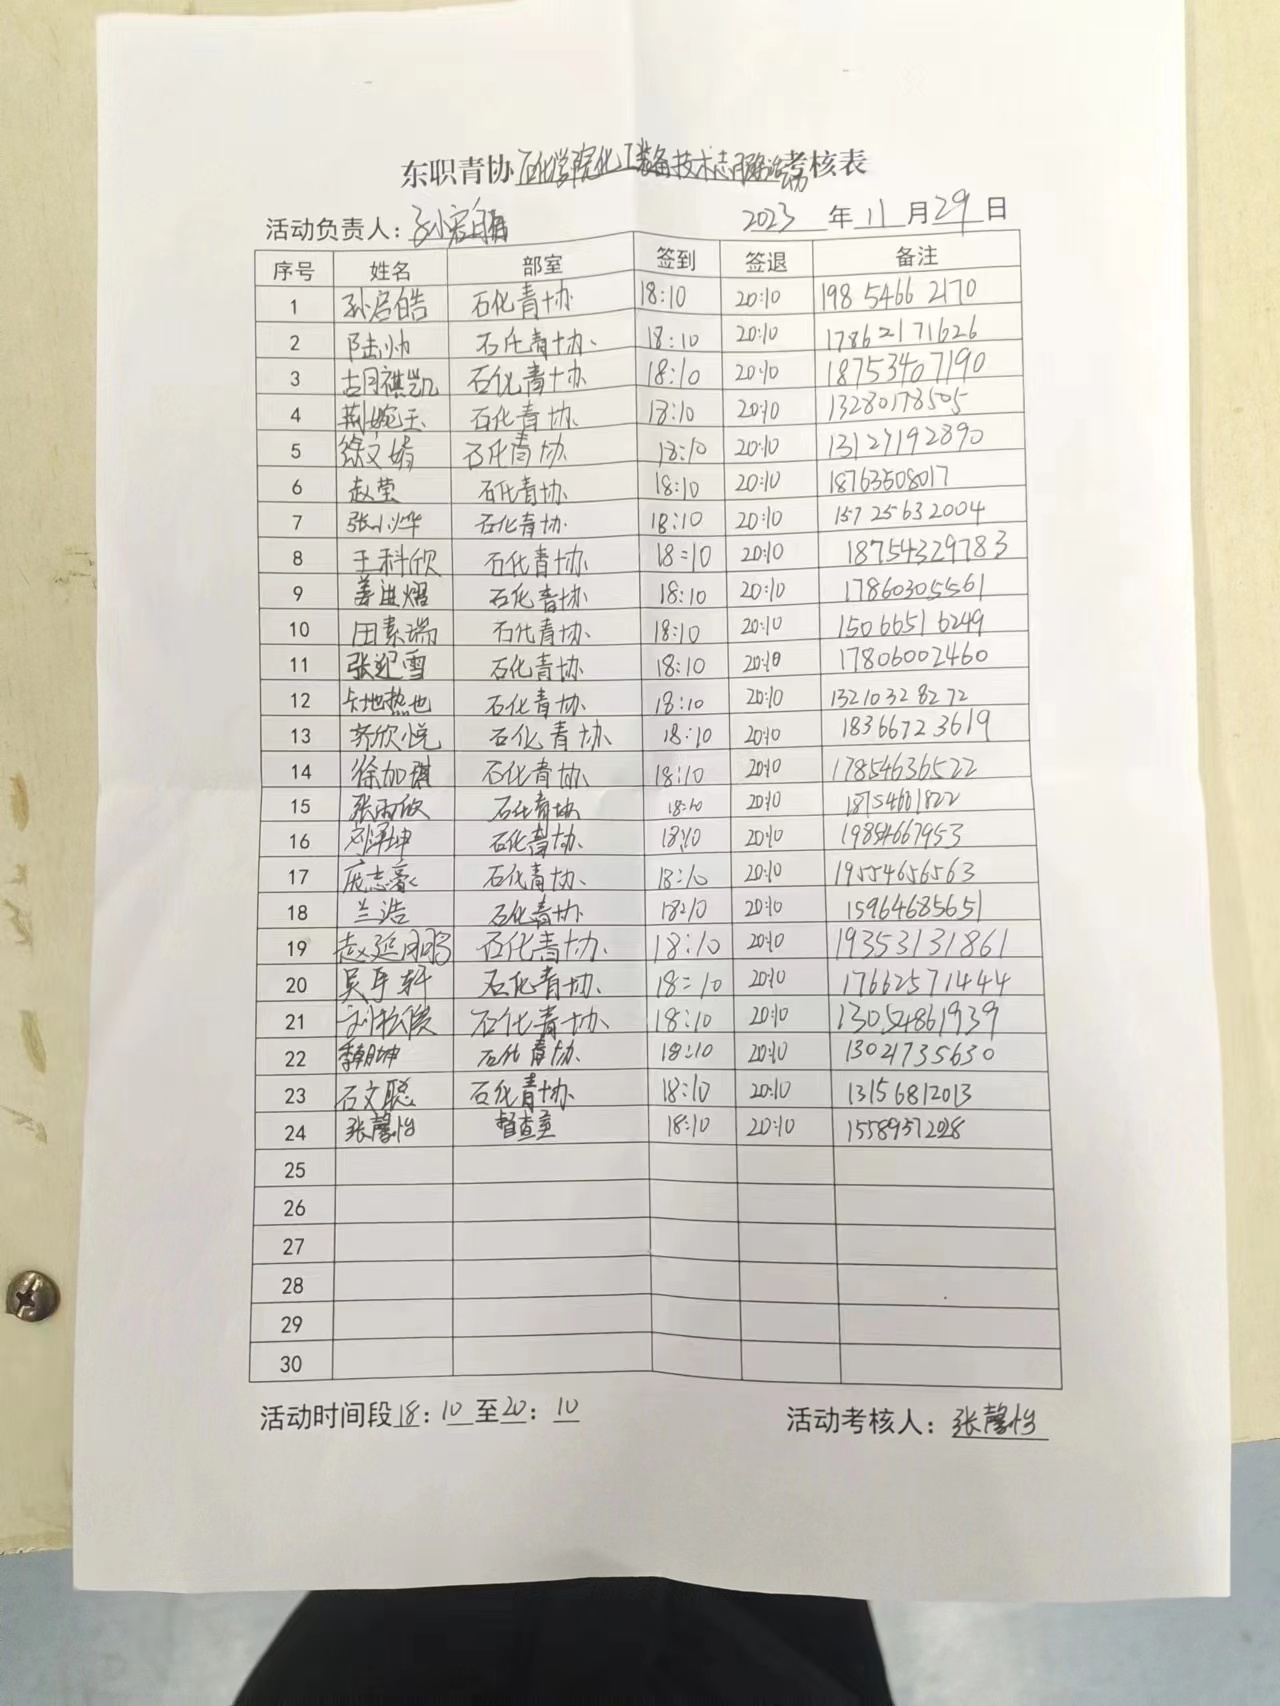 东职青协石化学院化工装备技术志愿服务活动考核表
活动负责人：孙启皓 2023年11月29日
序号 姓名 部室 签到 签退 备注
1 孙启皓 石化青协 18:10 20:10 198 5466 2170
2 陆帅 石化青协 18:10 20:10 17862171626
3 胡祺凯 石化青协 18:10 20:10 18753407190
4 荆婉玉 石化青协 18:10 20:10 13280178505
5 徐文婧 石化青协 18:10 20:10 13127192890
6 赵莹 石化青协 18:10 20:10 18763508017
7 张小烨 石化青协 18:10 20:10 15725632004
8 王科欣 石化青协 18:10 20:10 18754329783
9 姜进熠 石化青协 18:10 20:10 17860305561
10 田素瑞 石化青协 18:10 20:10 15066516249
11 张迎雪 石化青协 18:10 20:10 17806002460
12 卡地热也 石化青协 18:10 20:10 13210328272
13 齐欣悦 石化青协 18:10 20:10 18366723619
14 徐加琪 石化青协 18:10 20:10 17854636522
15 张雨欣 石化青协 18:10 20:10 18754601822
16 刘泽坤 石化青协 18:10 20:10 19854667953
17 庞志豪 石化青协 18:10 20:10 19554656563
18 兰浩 石化青协 18:10 20:10 15964685651
19 赵延鹏 石化青协 18:10 20:10 19353131861
20 石化青协 18:10 20:10 17662571444
21 刘松俊 石化青协 18:10 20:10 13054861939
22 石化青协 18:10 20:10 13021735630
23 石文聪 石化青协 18:10 20:10 13156812013
24 张馨怡 督查室 18:10 20:10 15589572028
25
26
27
28
29
30
活动时间段18:10至20:10 活动考核人：张馨怡